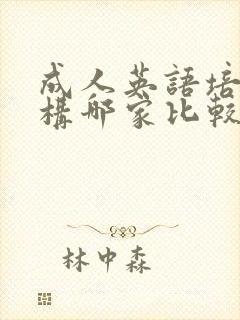 成人英語培
構哪家比較
林中森